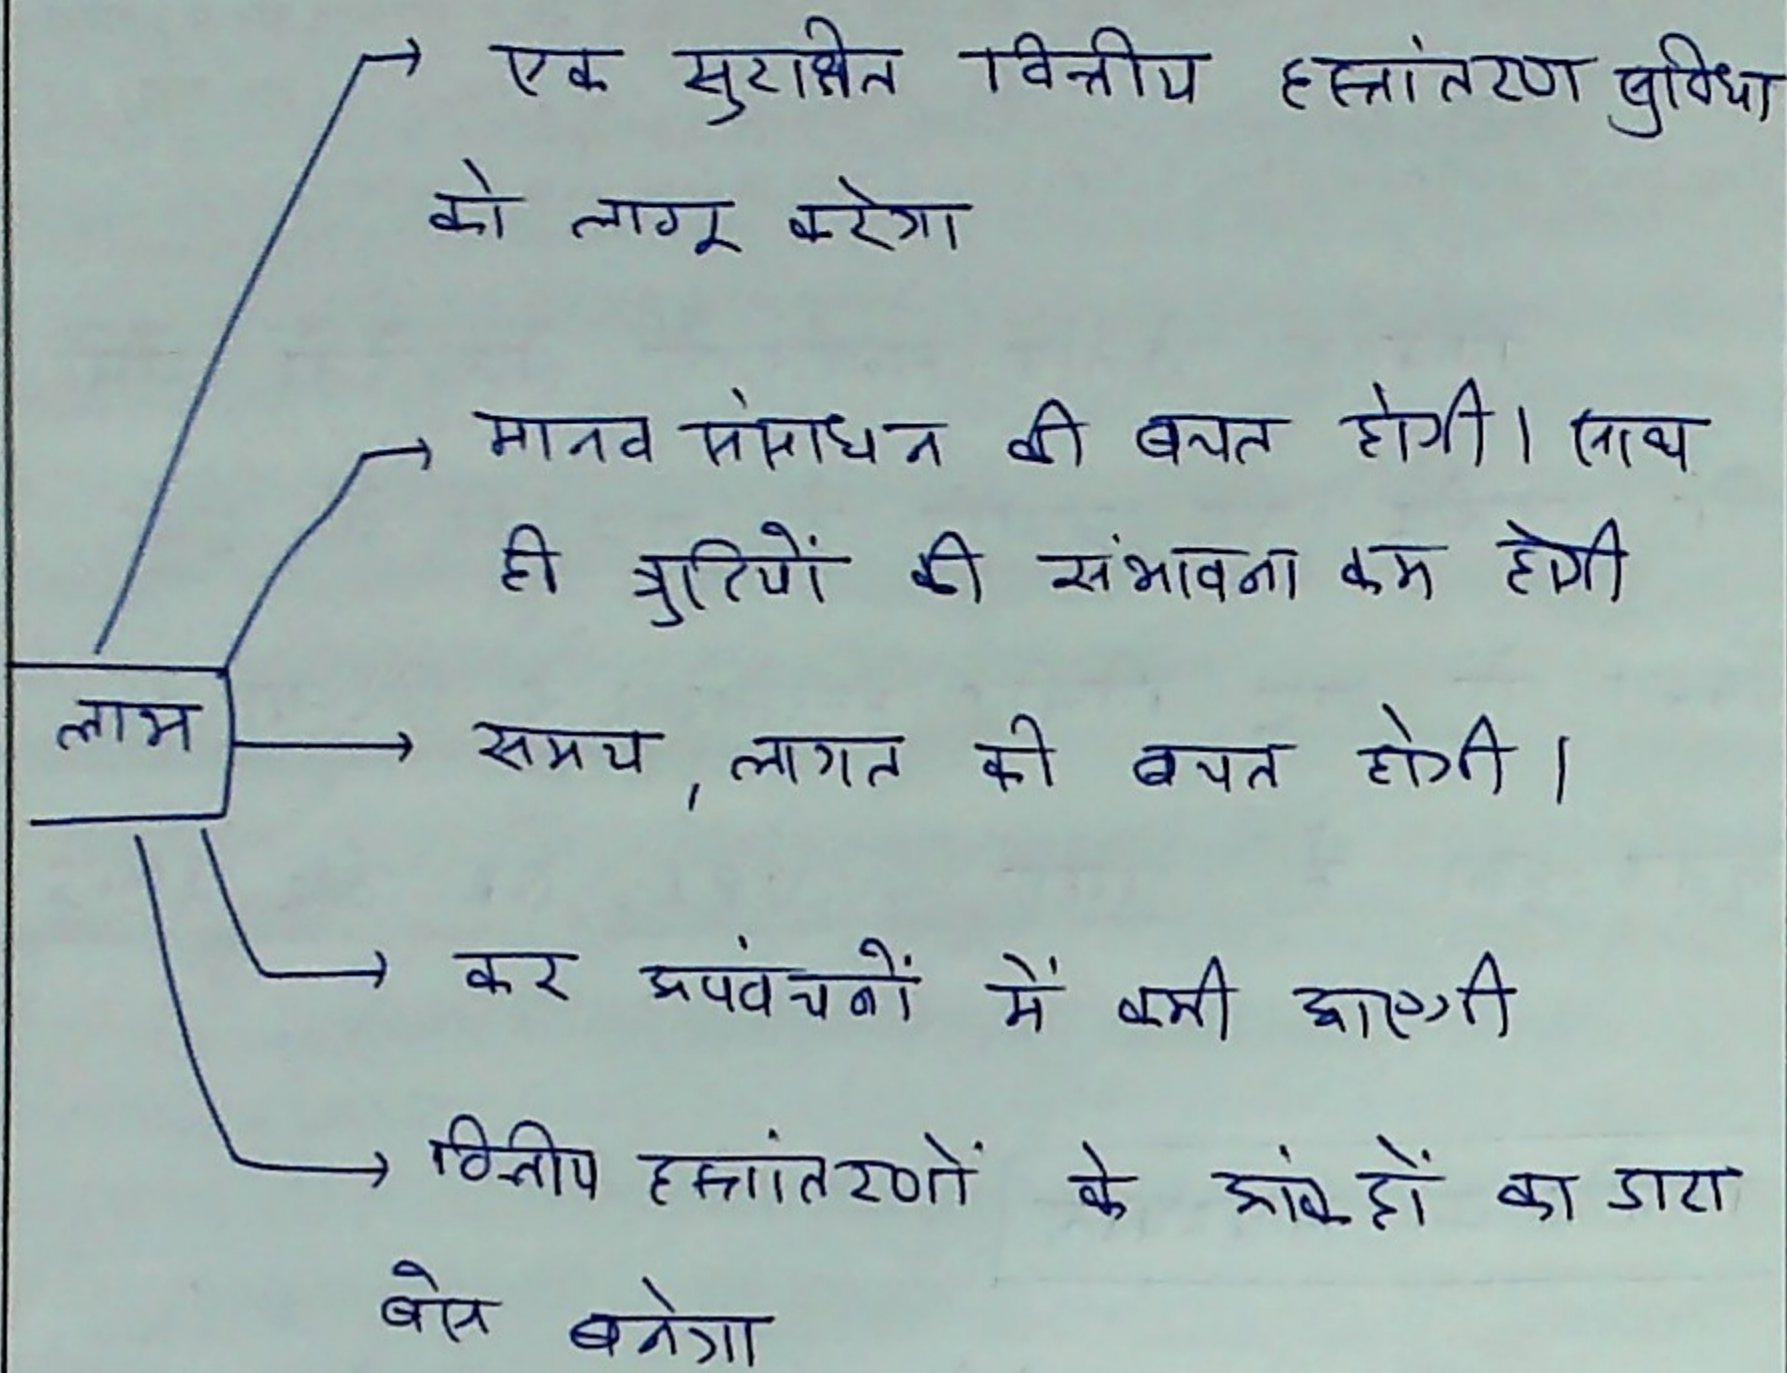 एक सुरक्षित वित्तीय हस्तांतरण सुविधा
को लागू करेगा
मानव संसाधन की बचत होगी। साथ
ही त्रुटियों की संभावना कम होगी
लाभ
समय, लागत की बचत होगी।
कर अपवंचनों में कमी आएगी
वित्तीय हस्तांतरणों के आंकड़ों का डाटा
बेस बनेगा